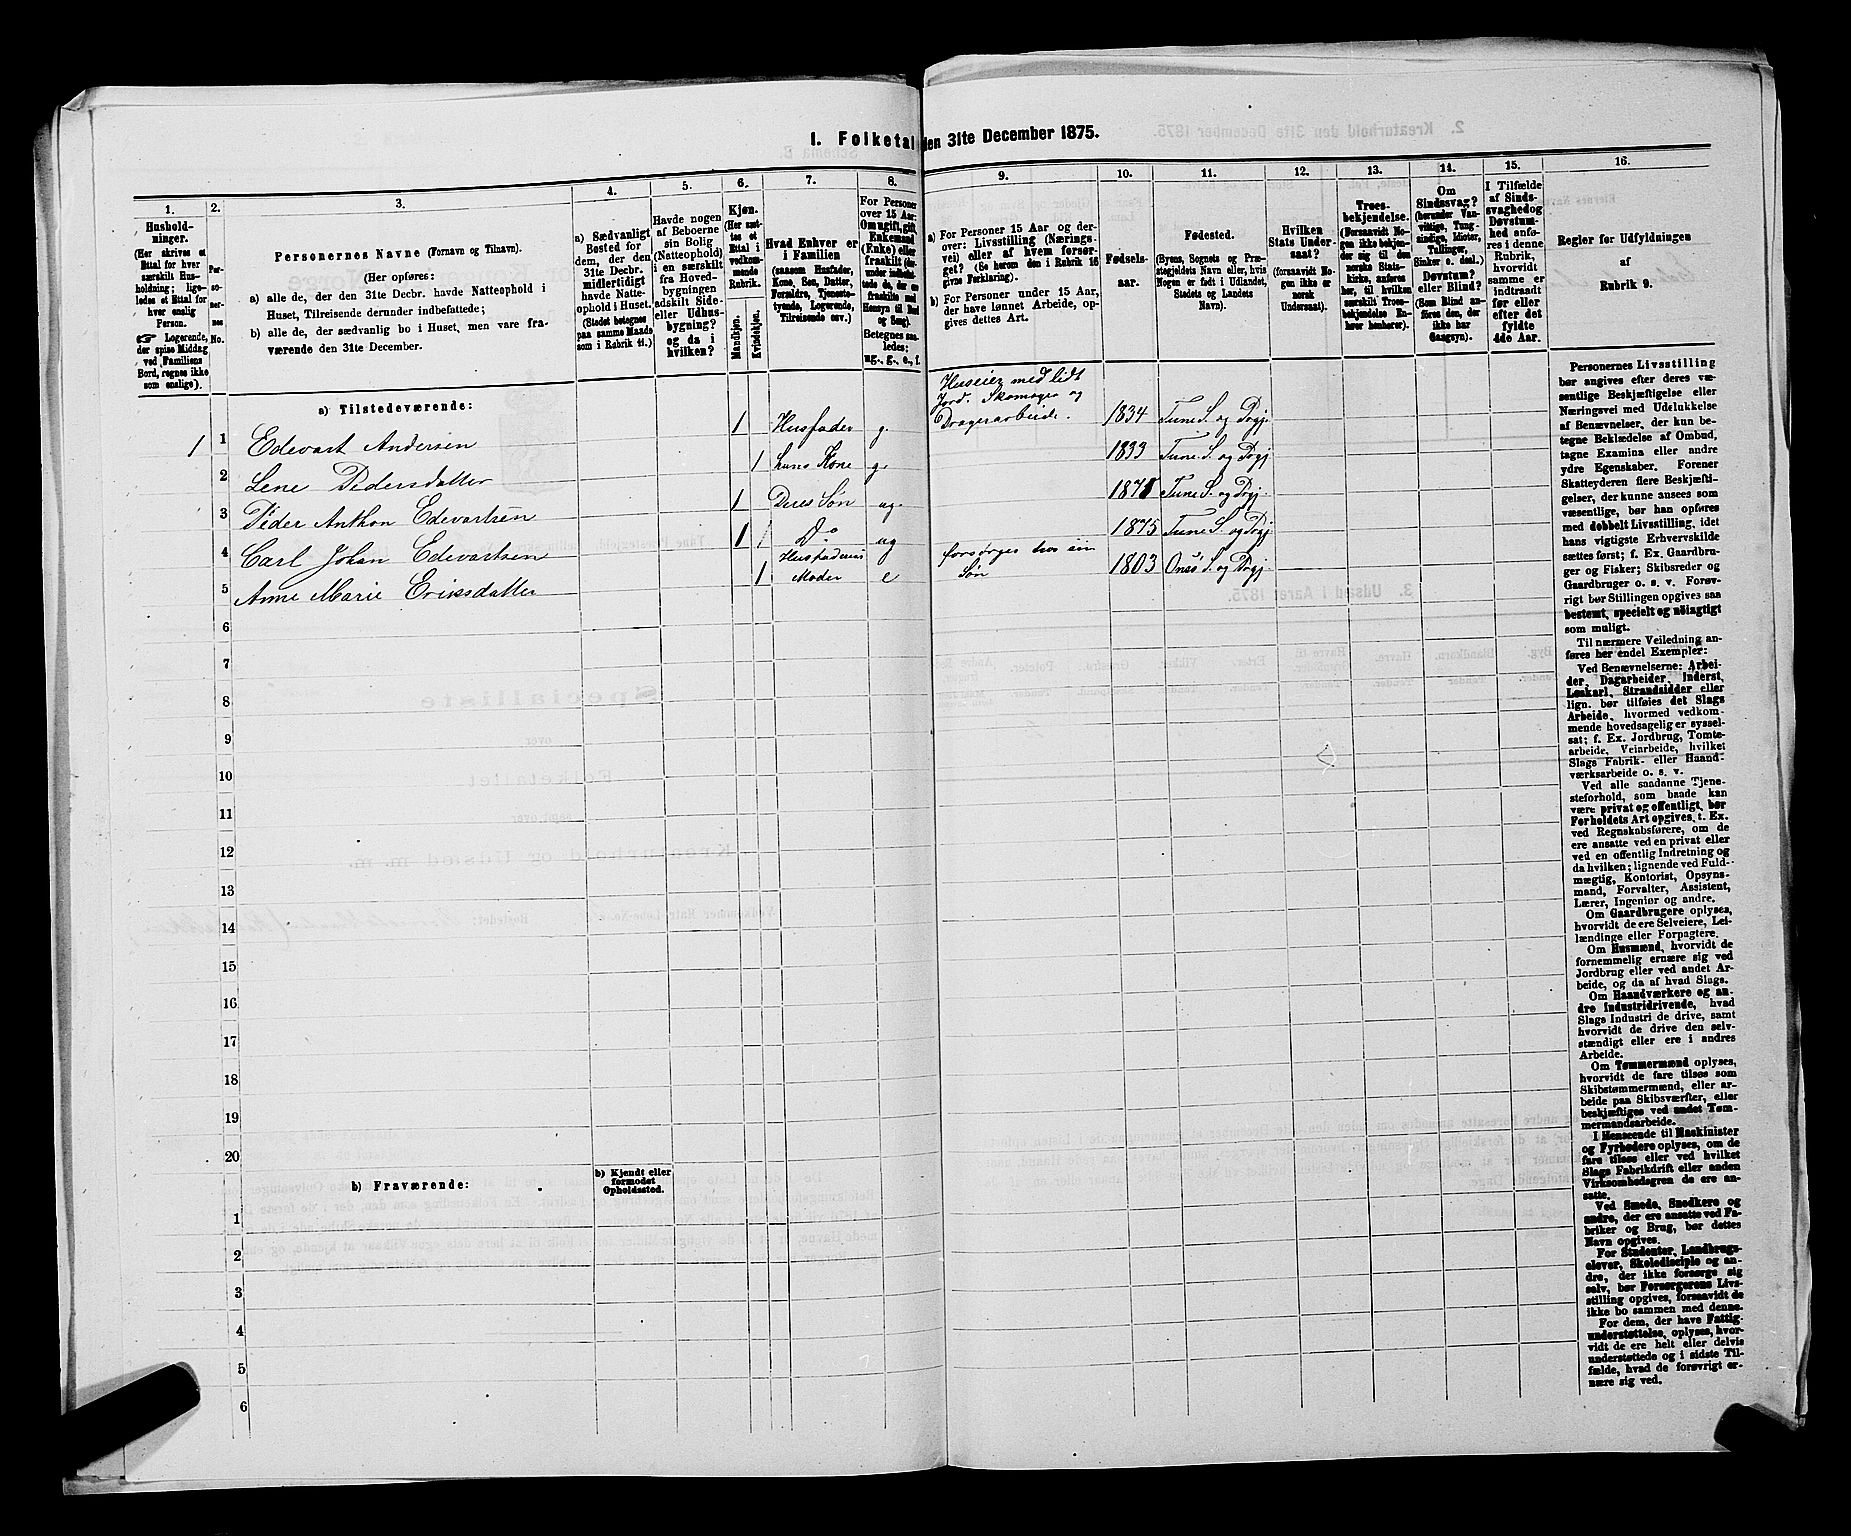 I. Folketal den 31te December 1875.
1. 2. 3. 4. 5. 6. 7. 8. 9. 10. 11. 12. 13. 14. 15. 16.
Husholdninger.
(Her skrives et
Ettal for hver
særskilt Husholdning;
ligeledes
et Ettal for
hver enslig
Person.
☞ Logerende,
der spise Middag
ved Familiens
Bord, regnes ikke
som enslige).
Personernes No.
Personernes Navne (Fornavn og Tilnavn).
(Her opføres:
a) alle de, der den 31te Decbr. havde Natteophold i
Huset, Tilreisende derunder indbefattede;
b) alle de, der sædvanlig bo i Huset, men vare fraværende
den 31te December.
a) Sædvanligt
Bosted for
dem, der den
31te Decbr.
midlertidigt
havde Natteophold
i Huset.
(Stedet betegnes
paa samme Maade
som i Rubrik 11.)
Havde nogen
af Beboerne
sin Bolig
(Natteophold)
i en særskilt
fra Hovedbygningen
adskilt Side-
eller Udhusbygning?
og da i
hvilken?
Kjøn.
(Her sættes
et
Ettal i
vedkommende
Rubrik.
Mandkjøn.
Kvindekjøn.
Hvad Enhver er
i Familien
(saasom Husfader,
Kone, Søn, Datter,
Forældre, Tjenestetyende,
Logerende,
Tilreisende osv.)
For Personer
over 15 Aar:
Om ugift, gift,
Enkemand
(Enke) eller
fraskilt
Betegnes saaledes:
ug., g., e., f.
a) For Personer 15 Aar og derover:
Livsstilling (Næringsvei)
eller af hvem forsørget?
(Se herom den i Rubrik 16
givne Forklaring).
b) For Personer under 15 Aar,
der have lønnet Arbeide, opgives
dettes Art.
Fødselsaar.
Fødested.
(Byens, Sognets og Præstegjeldets
Navn eller, hvis
Nogen er født i Udlandet,
Stedets og Landets
Navn).
Hvilken
Stats Undersaat?
(forsaavidt Nogen
ikke er
norsk
Undersaat).
Troesbekjendelse.
(Forsaavidt Nogen
ikke bekjender
sig til den
norske Statskirke,
anføres
her, til hvilken
særskilt Troesbekjendelse
Enhver
henhører).
Om
Sindssvag?
(herunder Vanvittige,
Tungsindige,
Idioter,
Tullinger,
Sinker o. desl.)
Døvstum?
eller Blind?
(Som Blind anføres
den, der
ikke har
Gangsyn).
I Tilfælde
af Sindssvaghed
og
Døvstumhed
anføres
i denne
Rubrik,
hvorvidt
samme er
indtraadt
før eller
efter det
fyldte
4de Aar.
Regler for Udfyldningen
af
Rubrik 9.
a) Tilstedeværende:
1 1 Edevart Andersen 1 Husfader g. Huseier med lidt Jord. Skomager og Dragerarbeide. 1834 Tune S. og Prgj.
2 Lene Pedersdatter 1 hans Kone g. 1833 Tune S. og Prgj
3 Peder Anthon Edevartsen 1 Deres Søn ug. 1871 Tune S. og Prgj.
4 Carl Johan Edevartsen 1 Do ug 1875 Tune S. og Prgj
5 Anne Marie Eriksdatter 1 Husfaderens Moder e forsørges hos sin Søn 1803 Onsö S. og Prgj.
6
7
8
9
10
11
12
13
14
15
16
17
18
19
20
b) Fraværende:
b) Kjendt eller
formodet
Opholdssted.
1
2
3
4
5
6
Personernes Livsstilling
bør angives efter deres væsentlige
Beskjæftigelse eller
Næringsvei med Udelukkelse
af Benævnelser, der kun betegne
Beklædelse af Ombud,
tagne Examina eller andre
ydre Egenskaber. Forener
Skatteyderen flere Beskjæftigelser,
der kunne ansees som
væsentlige, bør han opføres
med dobbelt Livsstilling, idet
hans vigtigste Erhvervskilde
sættes først; f. Ex. Gaardbruger
og Fisker; Skibsreder og
Gaardbruger o. s. v. Forøvrigt
bør Stillingen opgives saa
bestemt, specielt og nöiagtigt
som muligt.
Til nærmere Veiledning anføres
her endel Exempler:
Ved Benævnelserne: Arbeider,
Dagarbeider, Inderst,
Løskarl, Strandsidder eller
lign. bør tilføies det Slags
Arbeide, hvormed vedkommende
hovedsagelig er sysselsat;
f. Ex. Jordbrug, Tomtearbeide,
Veiarbeide, hvilket
Slags Fabrik- eller Haandværksarbeide
o. s. v.
Ved alle saadanne Tjenesteforhold,
som baade kan
være privat og offentligt, bør
Forholdets Art opgives, t. Ex.
ved Regnskabsførere, om de
ere ansatte ved en privat eller
ved en offentlig Indretning og
da hvilken; lignende ved Fuldmægtig,
Kontorist, Opsynsmand,
Forvalter, Assistent,
Lærer, Ingeniør og andre.
Om Gaardbrugere oplyses,
hvorvidt de ere Selveiere, Leilændinge
eller Forpagtere.
Om Husmænd, hvorvidt de
fornemmelig ernære sig ved
Jordbrug eller ved andet Arbeide,
og da af hvad Slags.
Om Haandværkere og andre
industridrivende, hvad
Slags Industri de drive, samt
hvorvidt de drive den selvstændigt
eller ere i andres
Arbeide.
Om Tømmermænd oplyses,
hvorvidt de fare tilsøs som
Skibstømmermænd, eller arbeide
paa Skibsværfter, eller
beskjæftiges ved andet Tømmermandsarbeide.
I Henseende til Maskinister
og Fyrbødere oplyses, om de
fare tilsøs eller ved hvilket
Slags Fabrikdrift eller anden
Virksomhedsgren de ere ansatte.
Ved Smede, Snedkere og
andre, der ere ansatte ved Fabriker
og Brug, bør dettes
Navn opgives.
For Studenter, Landbrugselever,
Skoledisciple og andre,
der ikke forsørge sig
selv, bør Forsørgerens Livsstilling
opgives, forsaavidt de
ikke bo sammen med denne.
For dem, der have Fattigunderstøttelse,
oplyses, hvorvidt
de ere helt eller delvis
understøttede og i sidste Tilfælde,
hvad de forøvrigt ernære
sig ved.